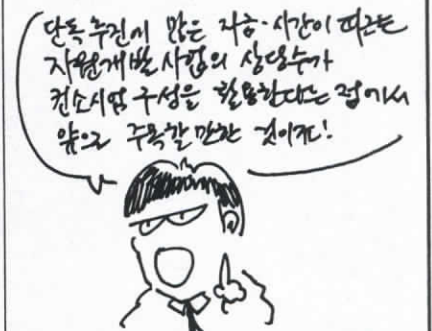 단독 추진에 많은 자금·시간이 따르는
자원개발 사업의 상당수가
컨소시엄 구성을 활용한다는 점에서
앞으로 주목할 만한 것이지!